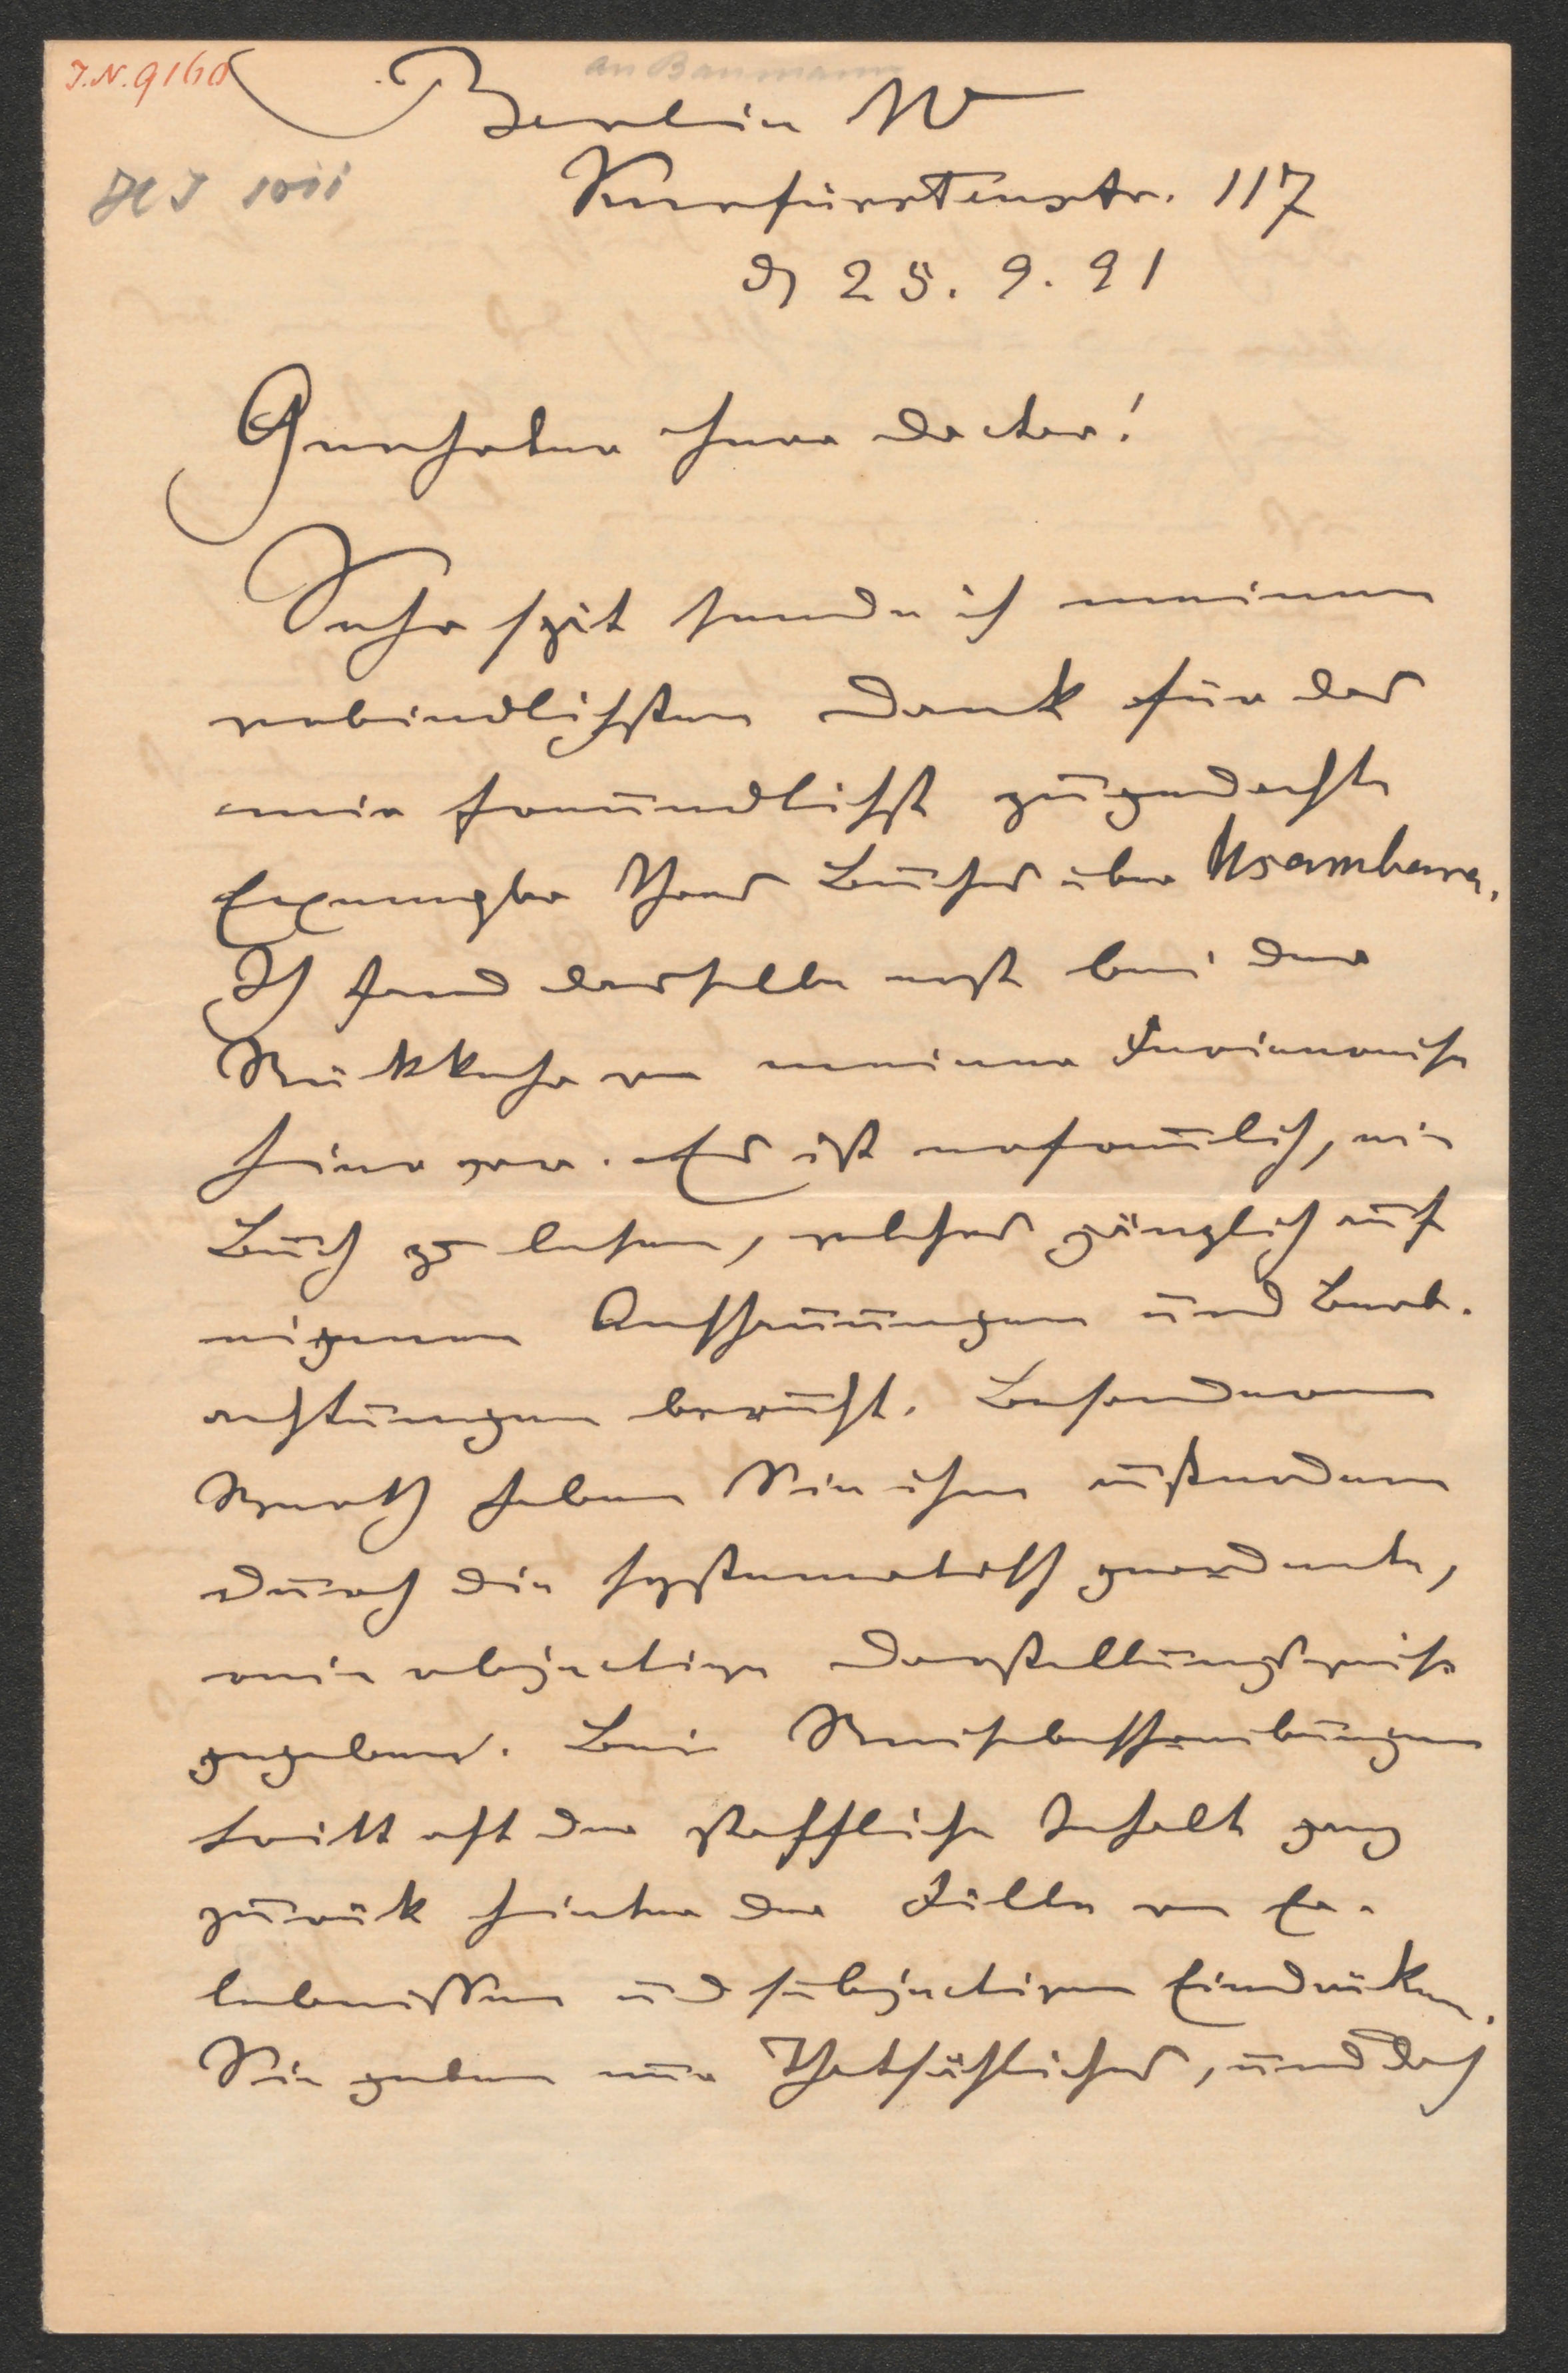 J.N. 9160
an Baumann
Berlin W
HI 1011
Kurfürstenstr. 117
d 25. 9. 91
Geehrter Herr Doctor!
Sehr spät sende ich meinen
verbindlichsten Dank für das
mir freundlichst zugedachte
Exemplar Ihres Buches über Usambara.
Ich fand dasselbe erst bei der
Rückkehr von meiner Ferienreise
hier vor. Es ist erfreulich, ein
Buch zu lesen, welches gänzlich auf
eigenen Anschauungen und Beob-
achtungen beruht. Besonderen
Werth haben Sie ihm außerdem
durch die systematisch geordnete,
rein objective Darstellungsweise
gegeben. Bei Reisebeschreibungen
tritt oft der stoffliche Inhalt ganz
zurück hinter der Fülle von Er-
lebnissen und subjectiven Eindrücken.
Sie geben nur Thatsächliches, und doch